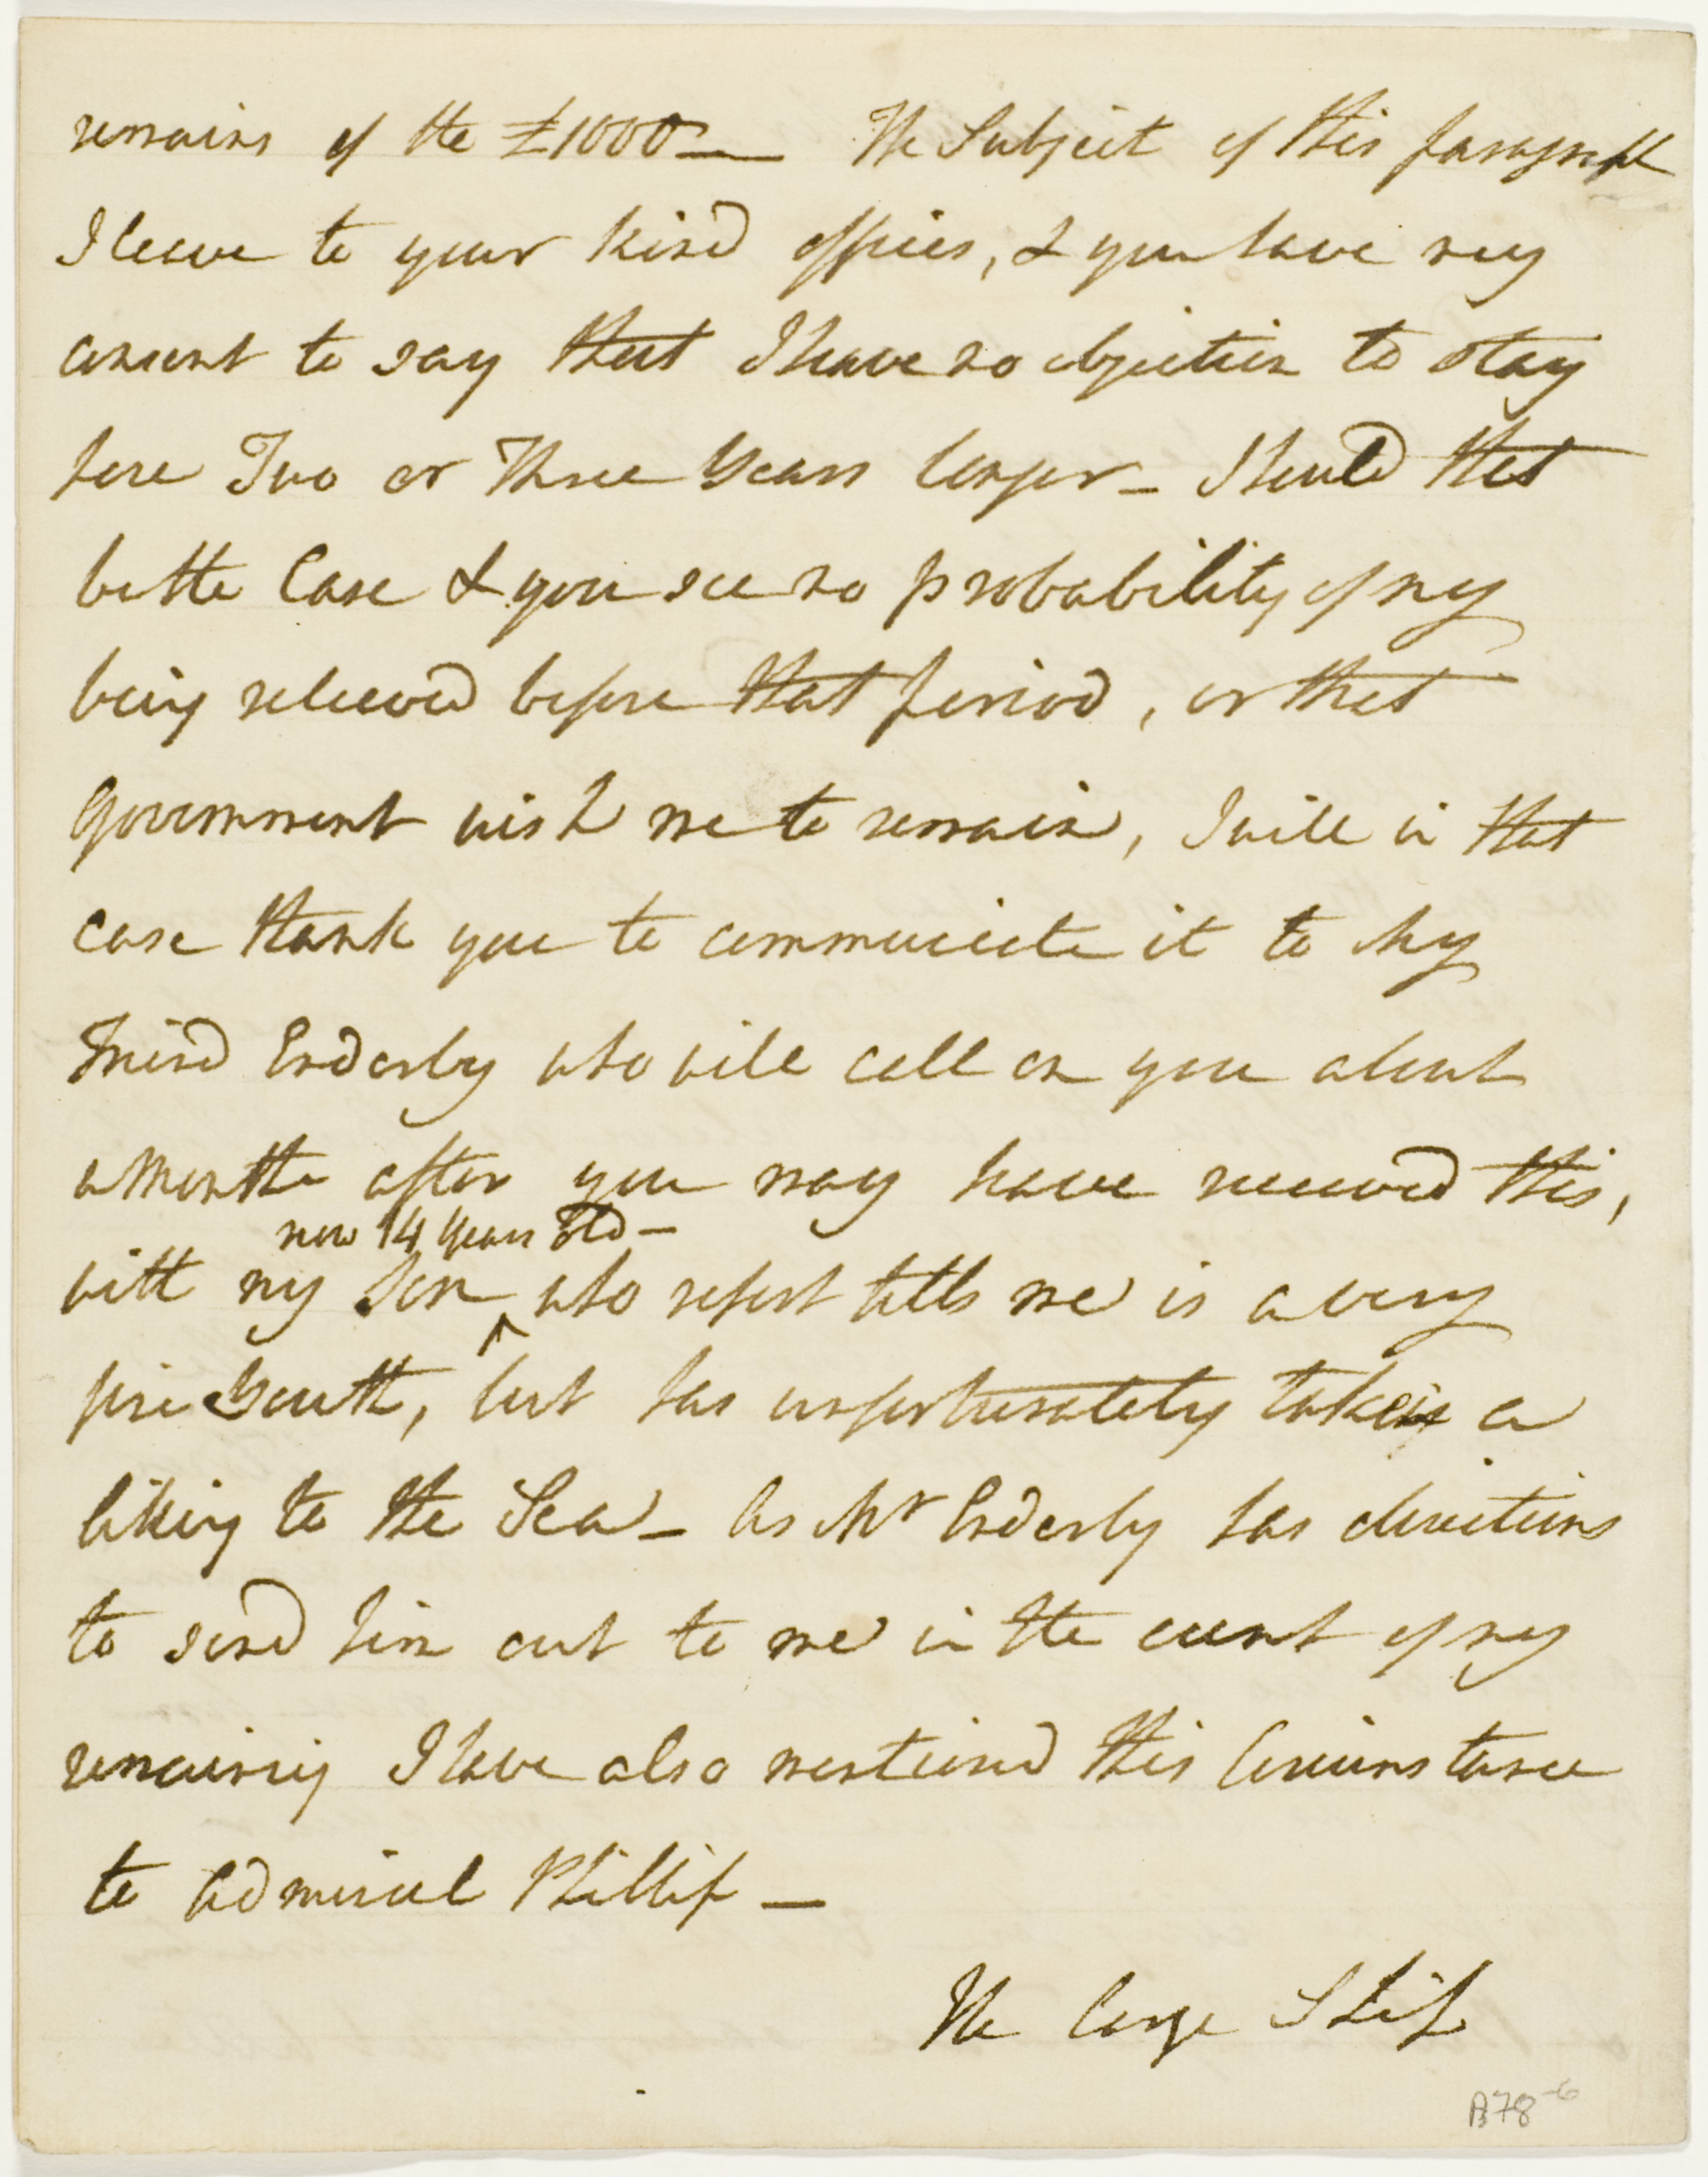 remains of the £1000 — The Subject of this paragraph
I leave to your kind offices, & you have my
consent to say that I have no objection to stay
here Two or Three Years longer – Should that
be the Case & you see no probability of my
being relieved before that period, or that
Government wish me to remain, I will in that
case thank you to communicate it to My
Friend Enderby who will call on you about
a Month after you may have received this,
now 14 Years Old –
with my Son ^ who report tells me is a very
fine Youth, but has unfortunately taken a
liking to the Sea – As Mr Enderby has directions
to send him out to me in the event of my
remaining I have also mentioned this Circumstance
to Admiral Phillip —
The large Ship
B78-6